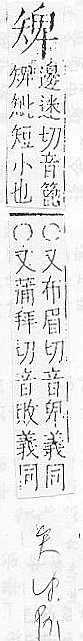 邊迷切音篦
短小也
○又布眉切音卑義同
○又蒲拜切音敗義同
矢